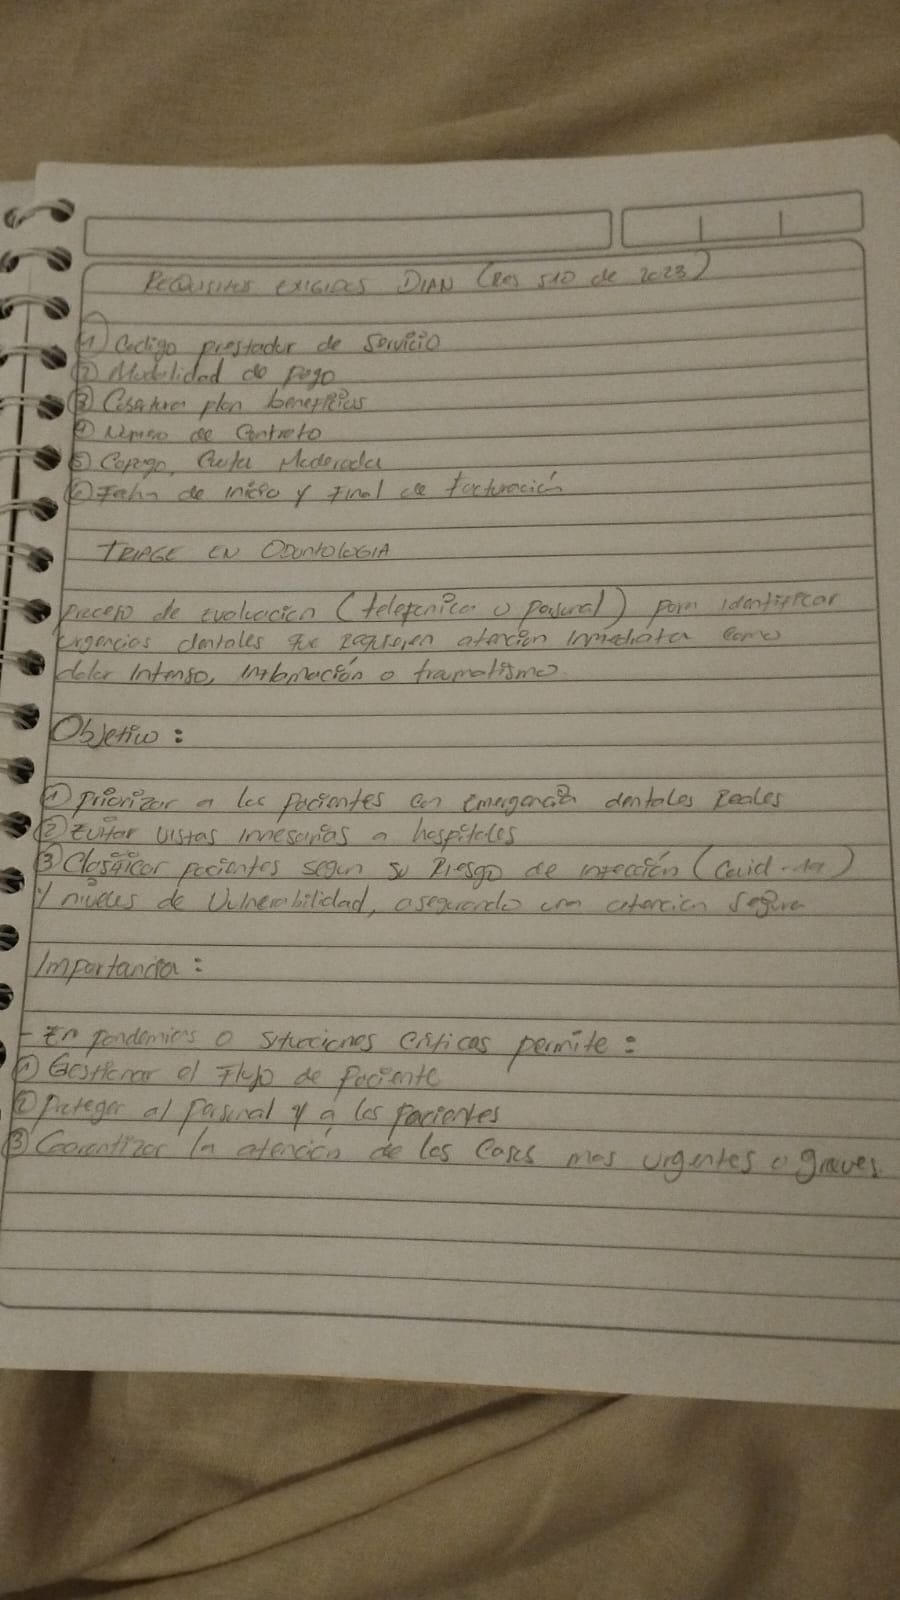 Requisitos exigidos DIAN (Res 510 de 2023)
① Codigo prestador de servicio
② Modalidad de pago
③ Cobertura plan beneficios
④ Número de Contrato
⑤ Copago, Cuota Moderada
⑥ Fecha de inicio y Final de facturación
TRIAGE EN ODONTOLOGIA
proceso de evaluacion (telefonica o personal) para identificar
urgencias dentales que requieren atencion inmediata como
dolor Intenso, inflamación o traumatismo.
Objetivo :
① priorizar a los pacientes con emergencia dentales Reales
② Evitar vistas innesarias a hospitales
③ Clasificar pacientes segun su Riesgo de infección (Covid-19)
y niveles de Vulnerabilidad, asegurando una atencion segura
Importancia :
- En pandemias o situaciones criticas permite :
① Gestionar el Flujo de paciente
② Proteger al personal y a los pacientes
③ Garantizar la atención de los casos mas urgentes o graves.